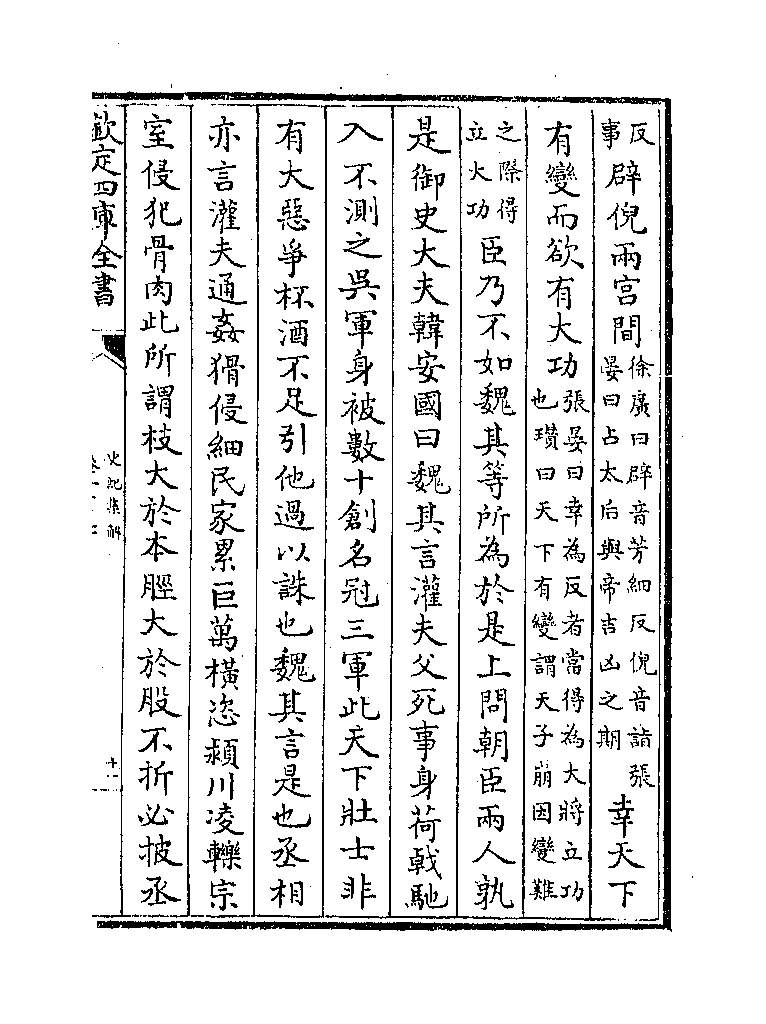 反事辟倪兩宮間徐廣曰辟音芳細反倪音詣張晏曰占太后與帝吉凶之期幸天下
有變而欲有大功張晏曰幸為反者當得為大將立功也瓚曰天下有變謂天子崩因變難
之際得立大功臣乃不如魏其等所為於是上問朝臣兩人孰
是御史大夫韓安國曰魏其言灌夫父死事身荷戟馳
入不測之吳軍身被數十創名冠三軍此天下壯士非
有大惡爭杯酒不足引他過以誅也魏其言是也丞相
亦言灌夫通姦猾侵細民家累巨萬橫恣潁川凌轢宗
室侵犯骨肉此所謂枝大於本脛大於股不折必披丞
欽定四庫全書
史記集解
十一